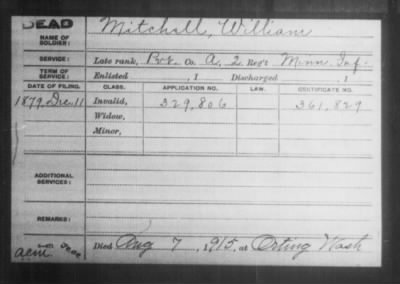 DEAD
NAME OF SOLDIER: Mitchell, William
SERVICE: Late rank, Pvt. Co. A, 2 Reg't Minn. Inf.
TERM OF SERVICE: Enlisted , 1 Discharged , 1
DATE OF FILING. CLASS. APPLICATION NO. LAW. CERTIFICATE NO.
1879, Dec. 11 Invalid, 329,806 361,829
Widow,
Minor,
ADDITIONAL SERVICES:
REMARKS:
Died Aug 7, 1915, at Orting Wash